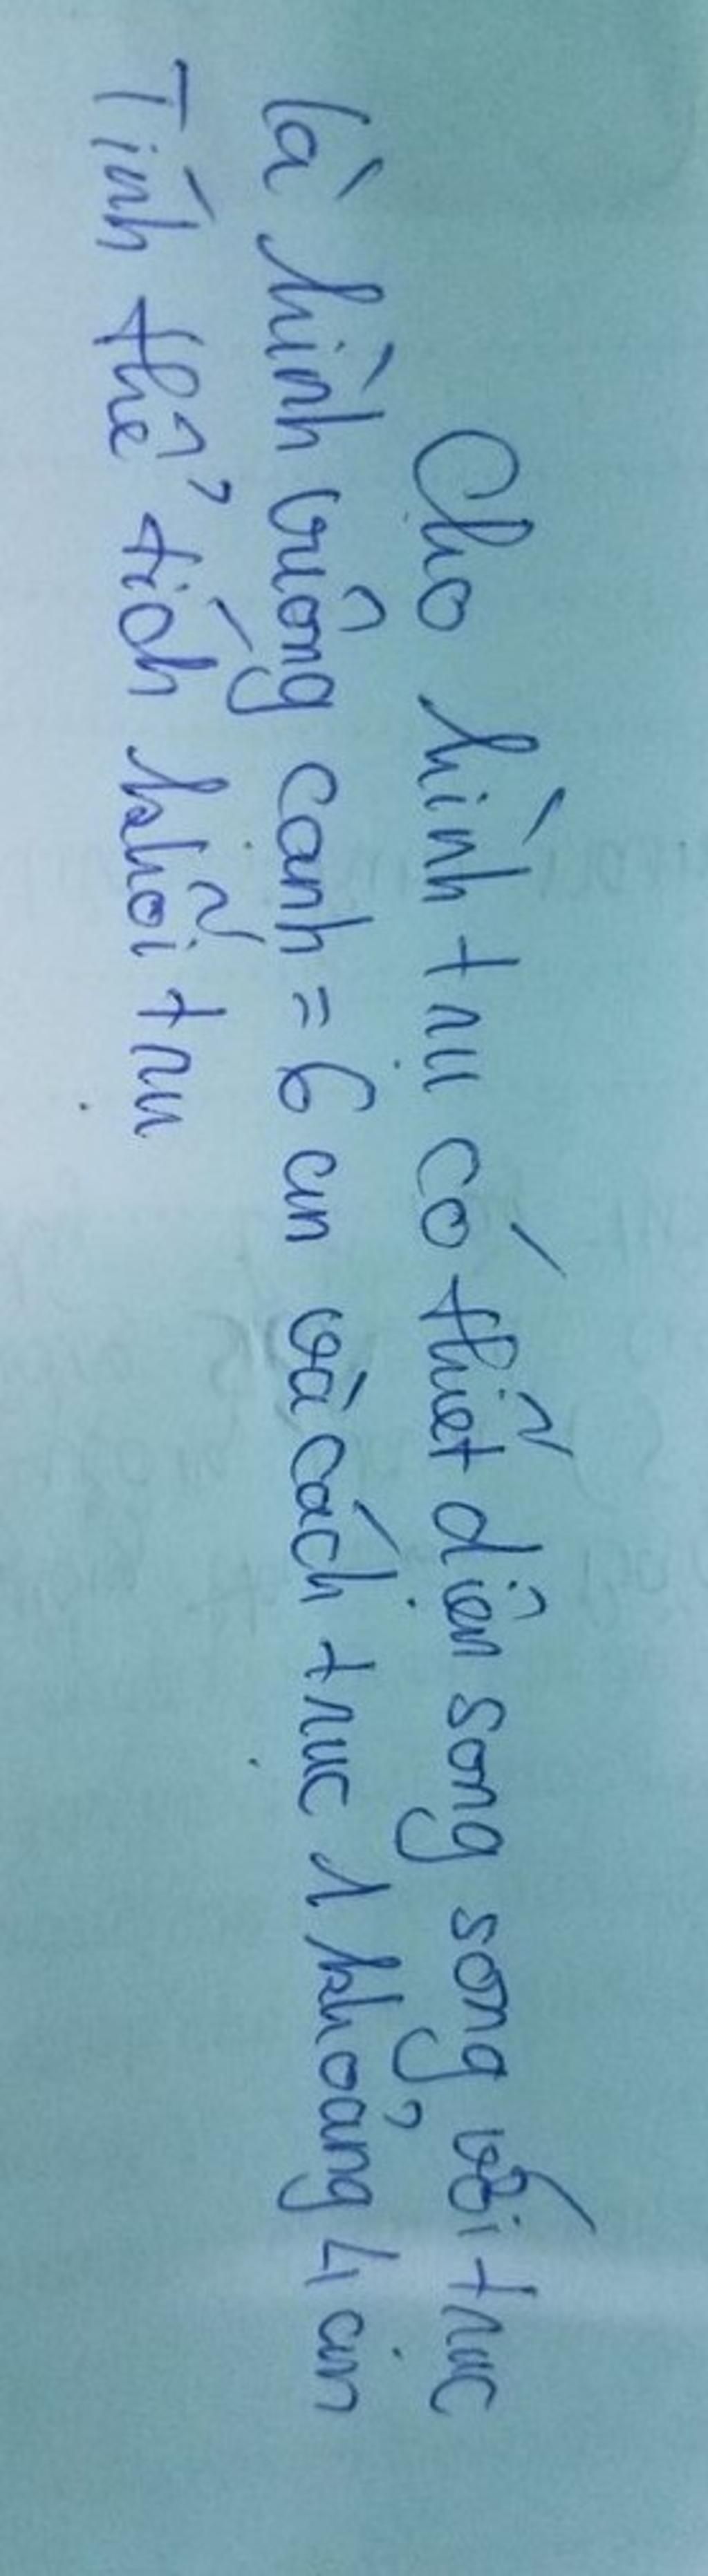 Cho hình trụ có thiết diện song song với trục
là hình vuông cạnh = 6 cm và cách trục 1 khoảng 4 cm
Tính thể tích khối trụ